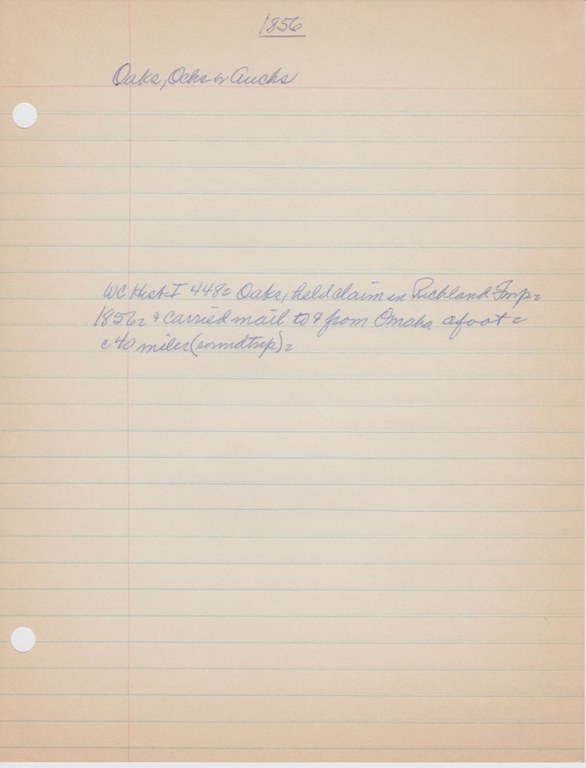 1856
Oaks, Ochs or Auchs
WC Hist I 448. Oaks, held claim in Richland Twp.
1856. & carried mail to & from Omaha afoot -
c 40 miles (roundtrip).